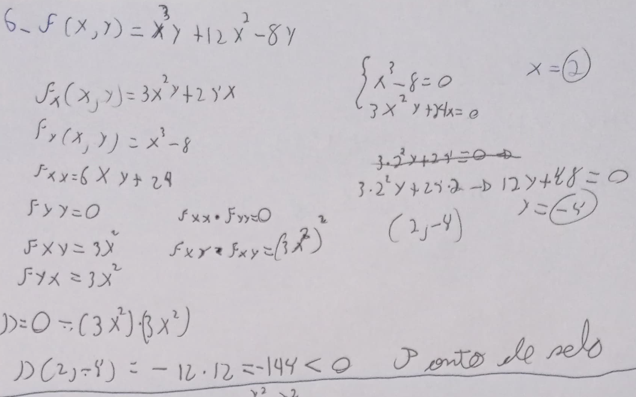 6- f(x,y) = x³y + 12x² - 8y
fx(x,y) = 3x²y + 24x
fy(x,y) = x³ - 8
fxx = 6xy + 24
fyy = 0
fxy = 3x²
fyx = 3x²
fxx · fyy = 0
fxy · fxy = (3x²)²
{ x³ - 8 = 0
3x²y + 24x = 0
x = 2
3·2²y + 24 = 0 →
3·2²y + 24·2 → 12y + 48 = 0
y = -4
(2, -4)
D = 0 - (3x²)·(3x²)
D(2, -4) = -12·12 = -144 < 0 Ponto de sela